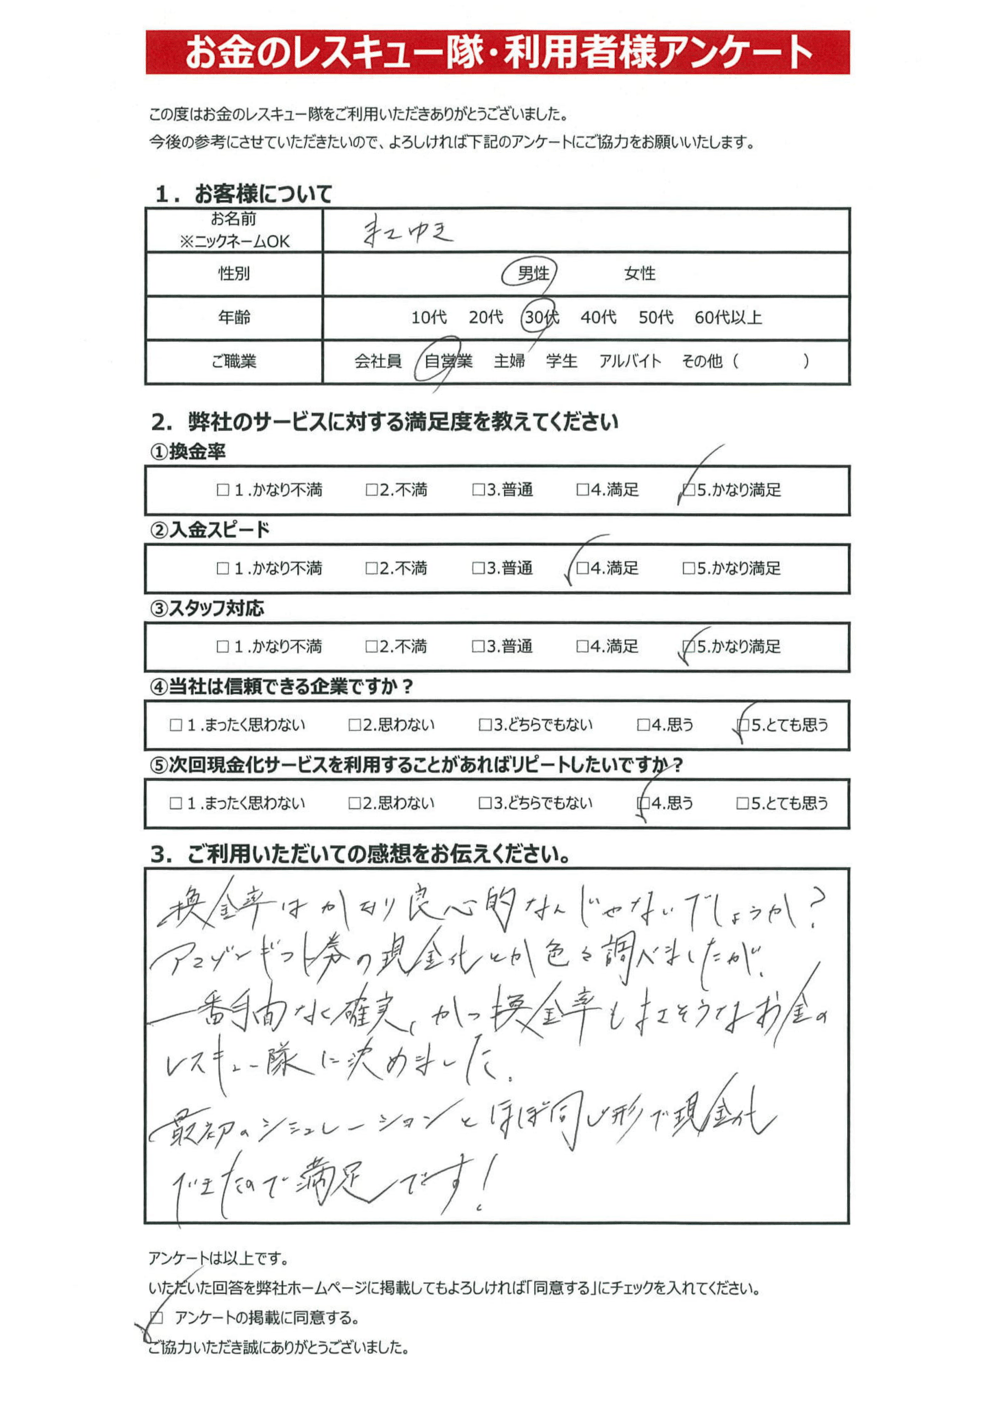 お金のレスキュー隊・利用者様アンケート
この度はお金のレスキュー隊をご利用いただきありがとうございました。
今後の参考にさせていただきたいので、よろしければ下記のアンケートにご協力をお願いいたします。
1．お客様について
お名前
※ニックネームOK
ゆき
性別 男性 女性
年齢 10代 20代 30代 40代 50代 60代以上
ご職業 会社員 自営業 主婦 学生 アルバイト その他（ ）
2．弊社のサービスに対する満足度を教えてください
①換金率
□1.かなり不満 □2.不満 □3.普通 □4.満足 □5.かなり満足
②入金スピード
□1.かなり不満 □2.不満 □3.普通 □4.満足 □5.かなり満足
③スタッフ対応
□1.かなり不満 □2.不満 □3.普通 □4.満足 □5.かなり満足
④当社は信頼できる企業ですか？
□1.まったく思わない □2.思わない □3.どちらでもない □4.思う □5.とても思う
⑤次回現金化サービスを利用することがあればリピートしたいですか？
□1.まったく思わない □2.思わない □3.どちらでもない □4.思う □5.とても思う
3．ご利用いただいての感想をお伝えください。
換金率はかなり良心的なんじゃないでしょうか？
アマゾンギフト券の現金化とか色々調べましたが、
一番手間なく確実、かつ換金率もよさそうなお金の
レスキュー隊に決めました。
最初のシミュレーションとほぼ同じ形で現金化
できたので満足です！
アンケートは以上です。
いただいた回答を弊社ホームページに掲載してもよろしければ「同意する」にチェックを入れてください。
□ アンケートの掲載に同意する。
ご協力いただき誠にありがとうございました。